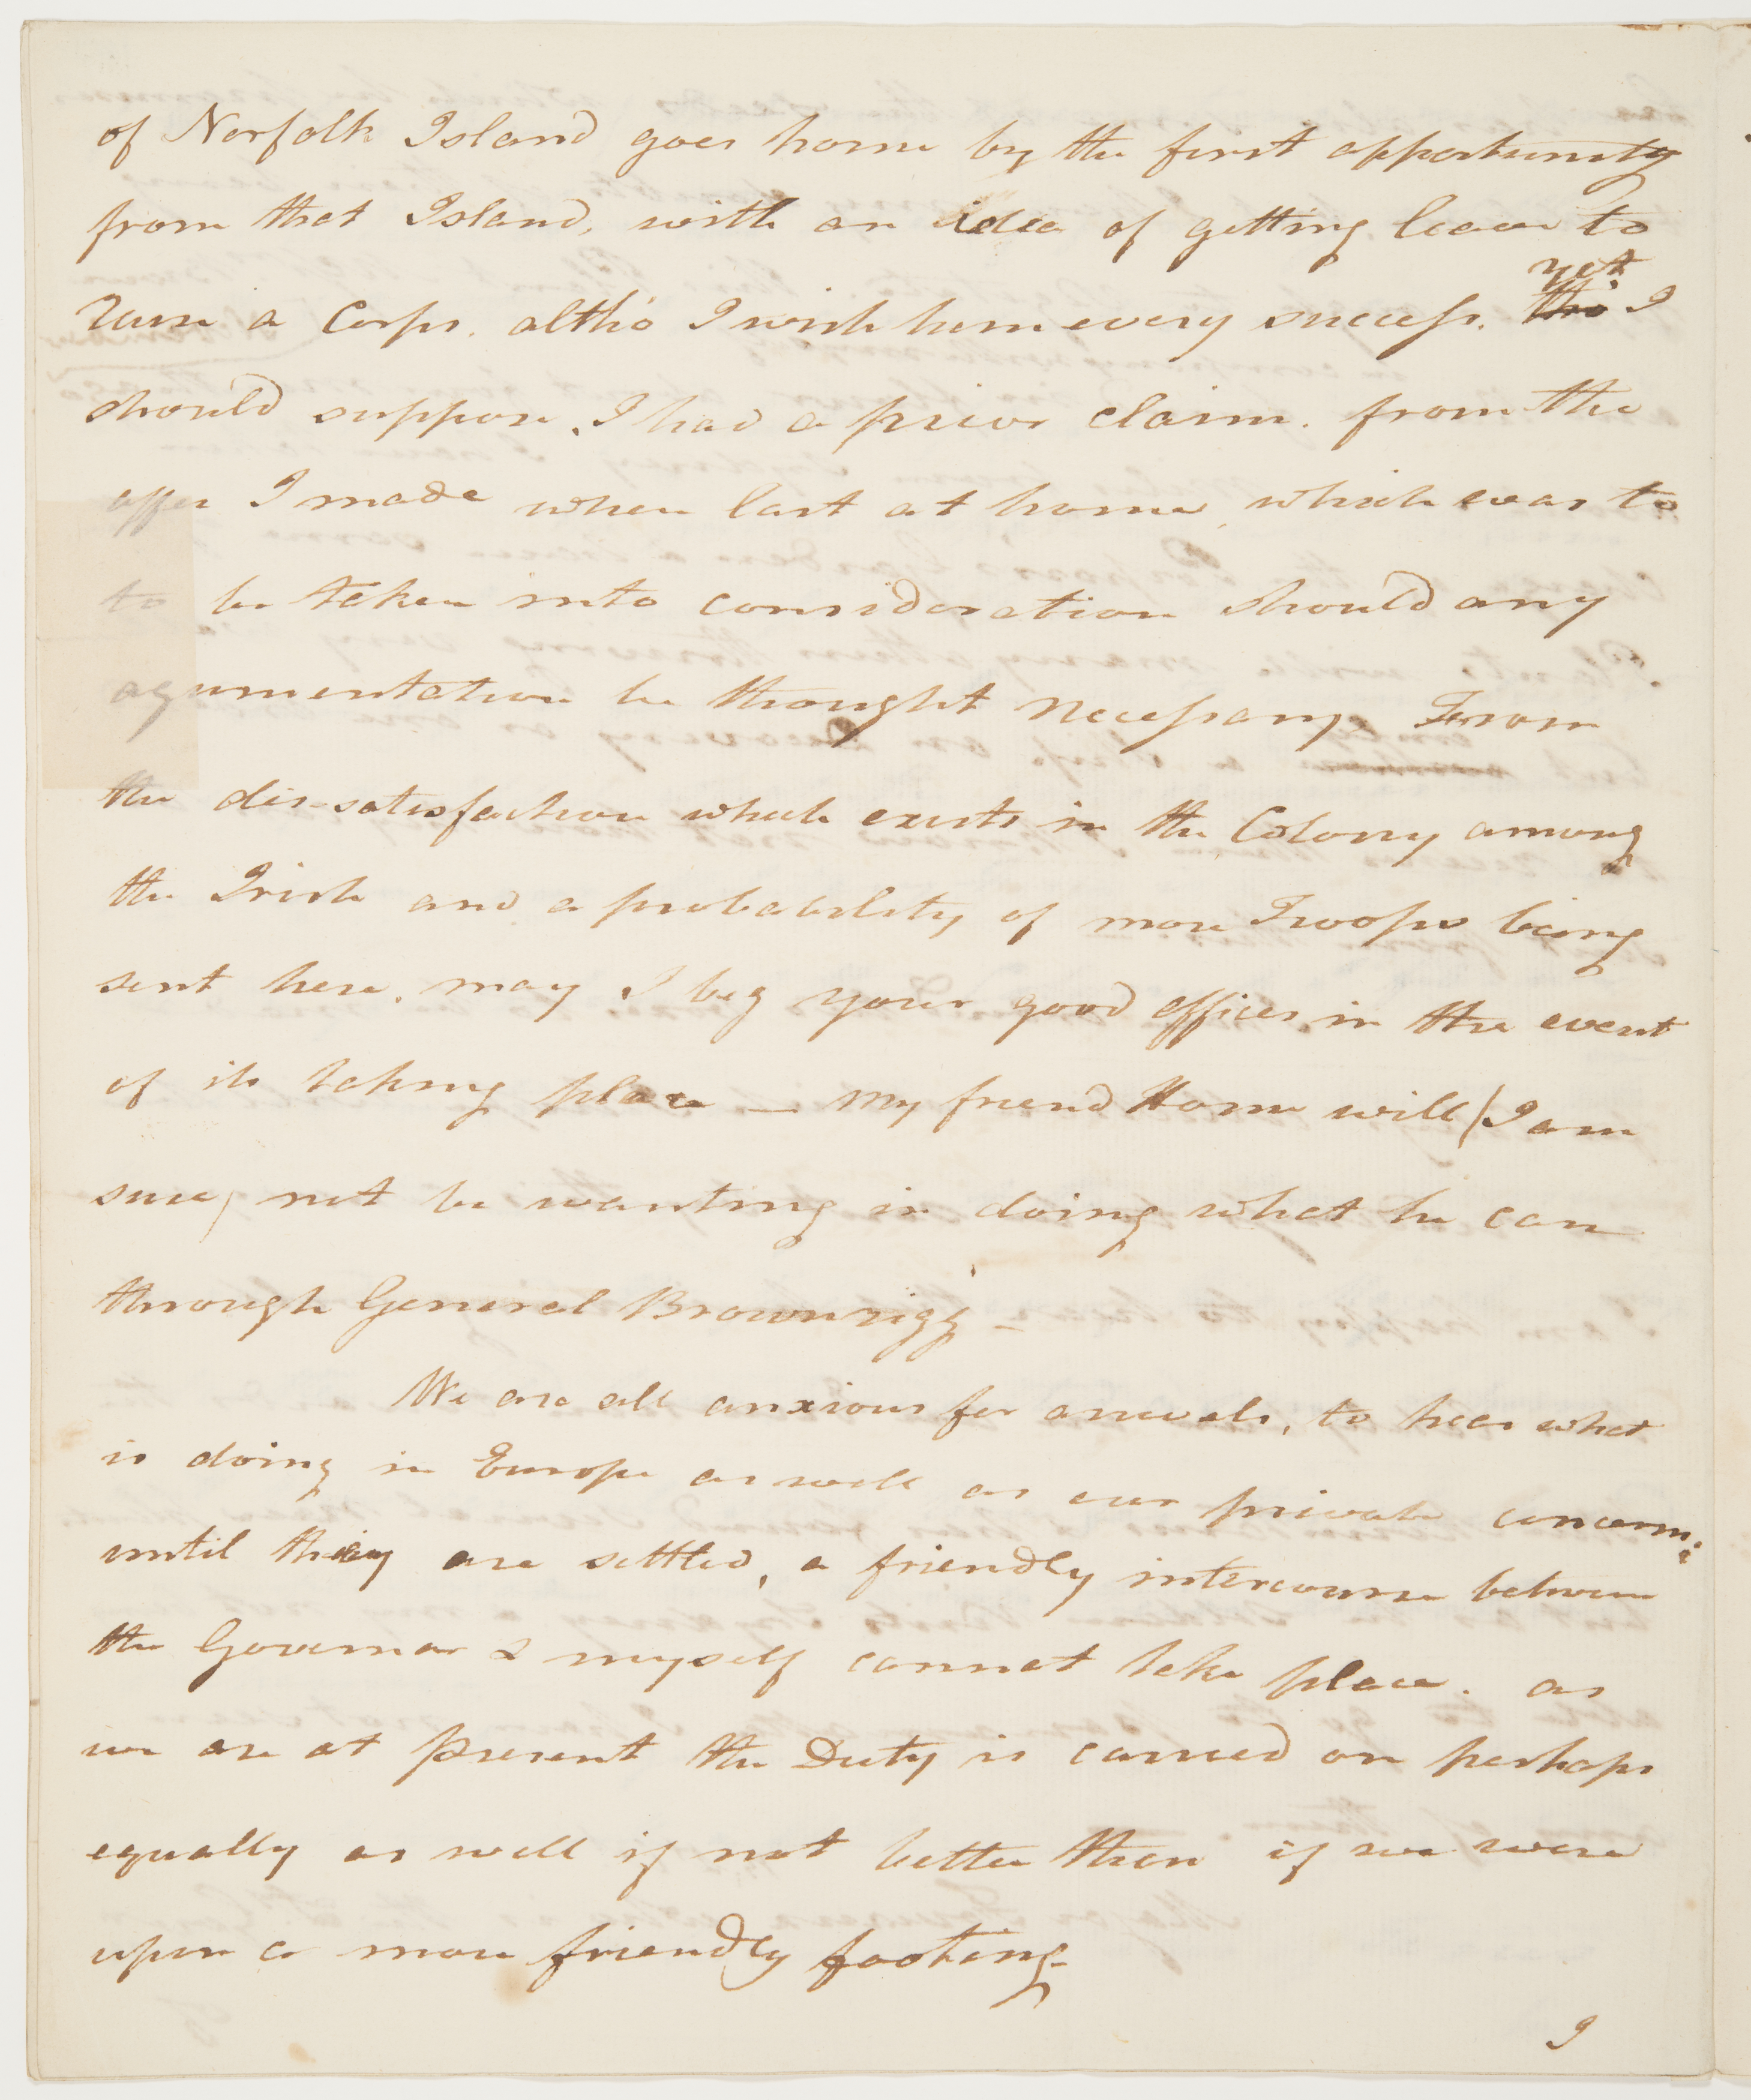 of Norfolk Island goes home by the first opportunity
from that Island, with an idea of getting leave to
raise a Corps. altho' I wish him every success. yet
tho' I
should suppose I had a prior claim. from the
offer I made when last at home, which was to
to be taken into consideration should any
agumentation be thought necessary. From
the dis-satisfaction which exists in the Colony among
the Irish and a probability of more Troops being
sent here. may I beg your good offices in the event
of its taking place — My friend Home will (I am
sure) not be wanting in doing what he can
through General Brownrigg —
We are all anxious for arrivals, to hear what
is doing in Europe as well as our private concerns:
until they are settled, a friendly intercourse between
the Governor & myself cannot take place. as
we are at present the Duty is carried on perhaps
equally as well if not better than if we were
upon a more friendly footing-
I